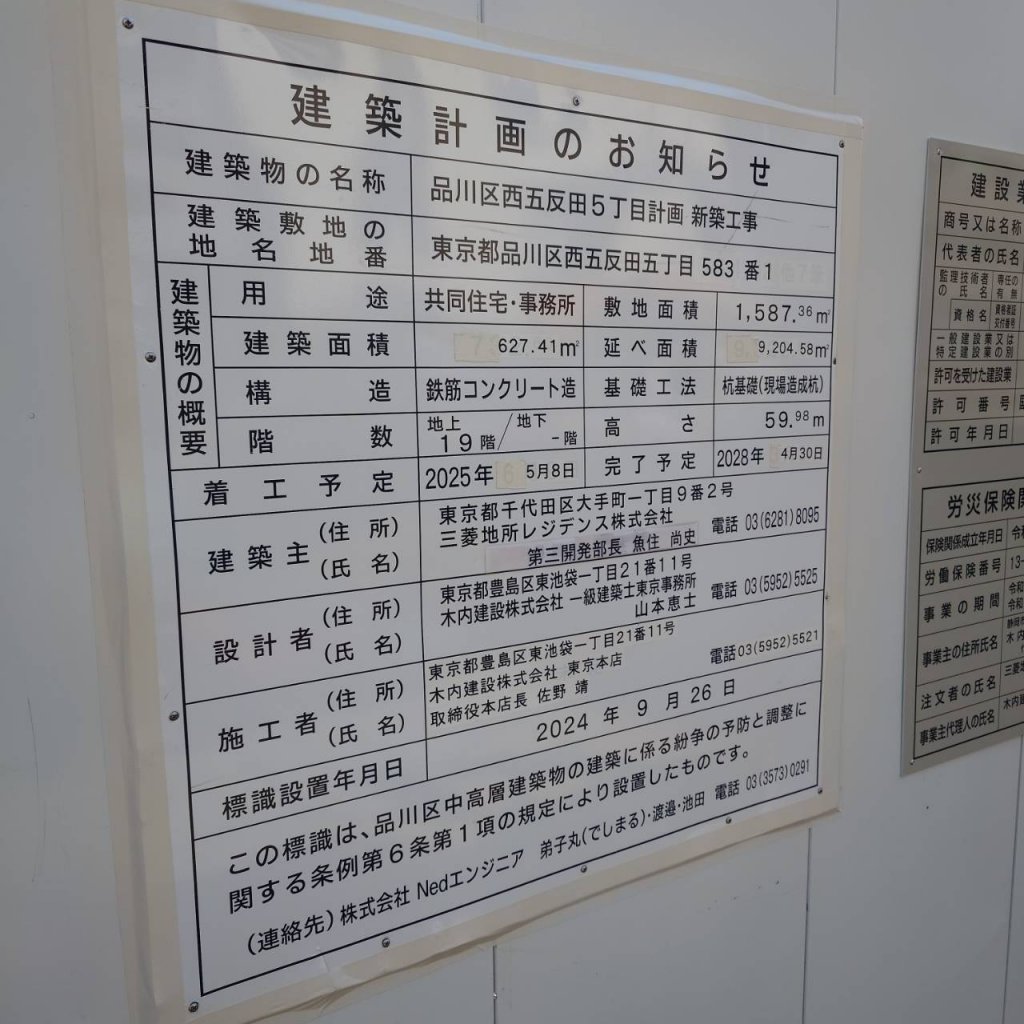 建築計画のお知らせ
建築物の名称 品川区西五反田5丁目計画 新築工事
建築敷地の地名地番 東京都品川区西五反田五丁目 583 番1
建築物の概要
用途 共同住宅・事務所 敷地面積 1,587.36㎡
建築面積 627.41㎡ 延べ面積 9,204.58㎡
構造 鉄筋コンクリート造 基礎工法 杭基礎(現場造成杭)
階数 地上 19階/地下 -階 高さ 59.98m
着工予定 2025年 5月8日 完了予定 2028年 4月30日
建築主 (住所) (氏名)
東京都千代田区大手町一丁目9番2号
三菱地所レジデンス株式会社 電話 03(6281)8095
第三開発部長 魚住 尚史
設計者 (住所) (氏名)
東京都豊島区東池袋一丁目21番11号
木内建設株式会社 一級建築士東京事務所 電話 03(5952)5525
山本恵士
施工者 (住所) (氏名)
東京都豊島区東池袋一丁目21番11号
木内建設株式会社 東京本店 電話03(5952)5521
取締役本店長 佐野 靖
標識設置年月日 2024 年 9 月 26 日
この標識は、品川区中高層建築物の建築に係る紛争の予防と調整に
関する条例第6条第1項の規定により設置したものです。
(連絡先)株式会社 Nedエンジニア 弟子丸(でしまる)・渡邉・池田 電話 03(3573)0291
建設業
商号又は名称
代表者の氏名
監理技術者の氏名 専任の有無
資格名 資格者証交付番号
一般建設業又は
特定建設業の別
許可を受けた建設業
許可番号
許可年月日
労災保険関
保険関係成立年月日 令和
労働保険番号 13-
事業の期間 令和
令和
事業主の住所氏名 静岡市
木内
注文者の氏名 三菱
事業主代理人の氏名 木内建